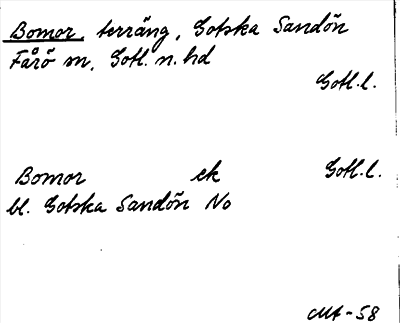 Bomor, terräng, Gotska Sandön
Fårö sn, Gotl. n. hd
Gotl. l.
Bomor ek Gotl. l.
bl. Gotska Sandön No
MA-58